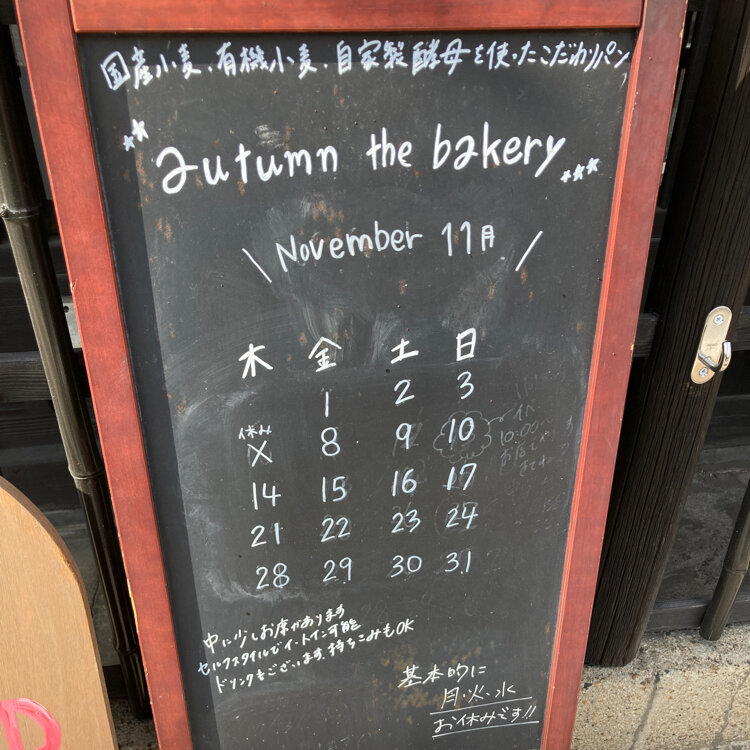 国産小麦、有機小麦、自家製酵母を使ったこだわりパン
autumn the bakery
November 11月
木 金 土 日
1 2 3
休み
X 8 9 10
14 15 16 17
21 22 23 24
28 29 30 31
中に少しお席があります
セルフスタイルでイートイン可能
ドリンクもございます。持ちこみもOK
基本的に
月・火・水
お休みです!!
10:00